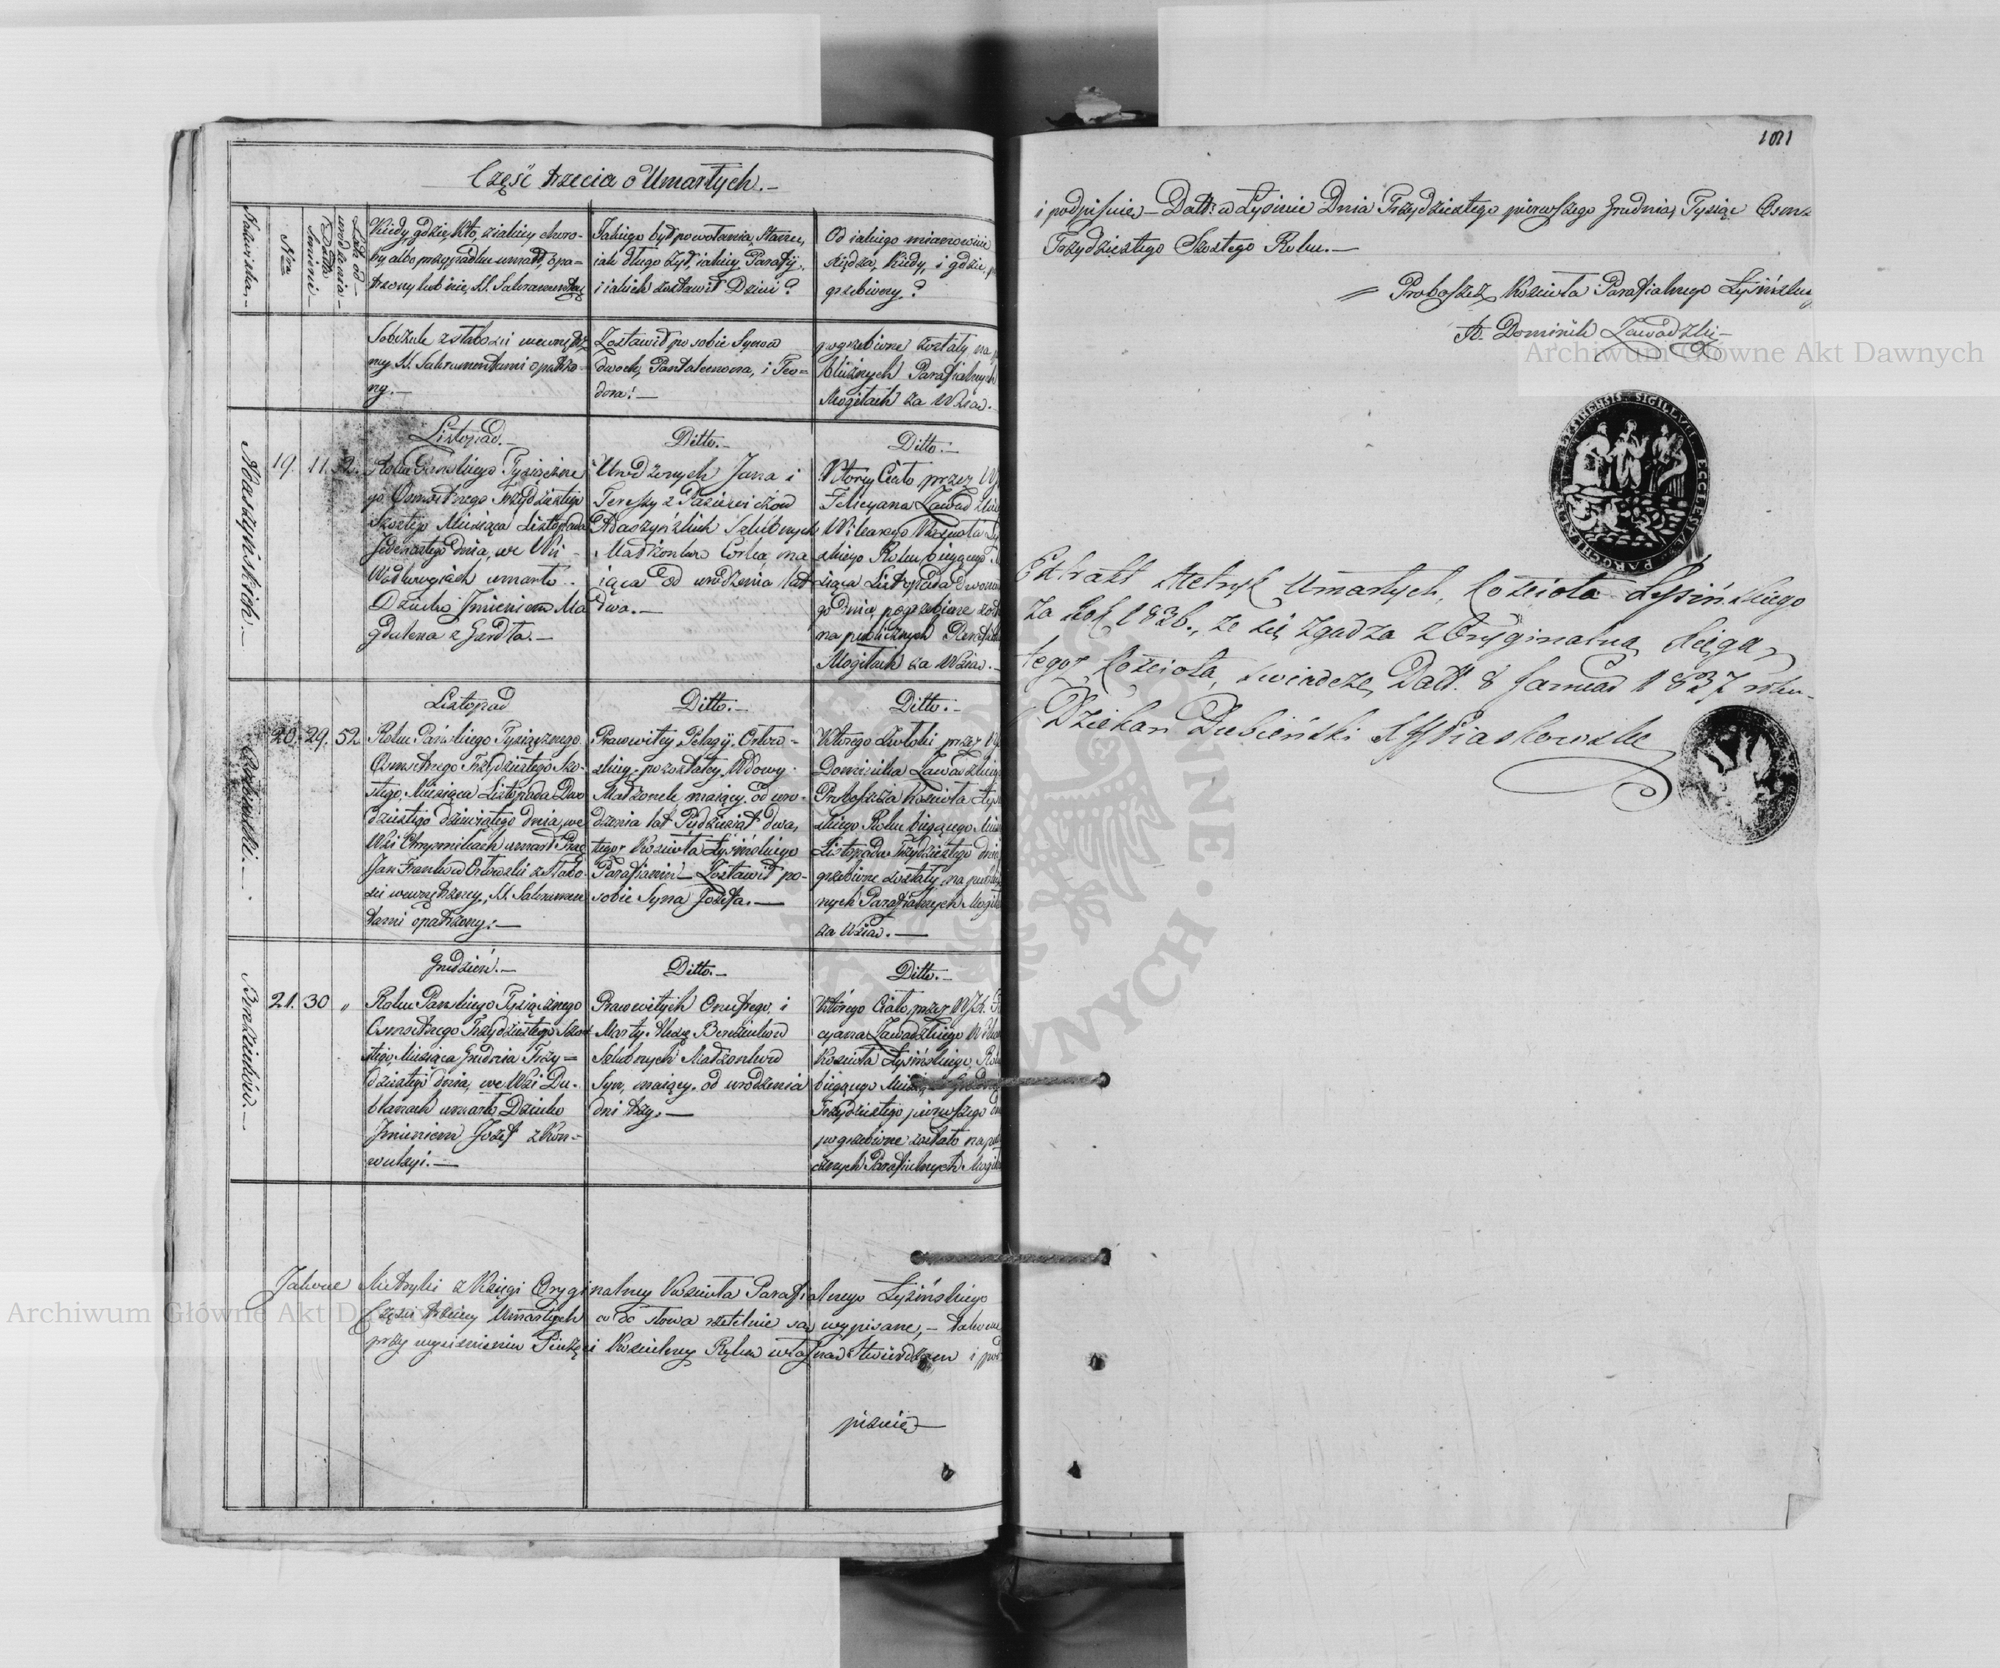 Część trzecia o Umarłych.
Nazwiska.
Nro
Datta Smierci
Lata od urodzenia
Kiedy, gdzie, Kto, z iakiey choro-
by albo przypadku umarł, opa-
trzony lub nie, SS. Sakramentami
Jakiego był powołania, Stanu,
iak długo żył, iakiey Parafij,
i iakich zostawił Dzieci?
Od iakiego mianowicie
Xiędza, Kiedy, i gdzie po
grzebiony?
Sobczuk z słabości wewnętrz
ny SS. Sakramentami opatrzo-
ny.
Zostawił po sobie Synow
dwoch, Pantaleona, i Teo-
dora.
pogrzebione zostały na p
blicznych Parafialnych
Mogiłach za Wsią.
19. 11. 2.
Listopad.
Roku Pańskiego Tysiącznego
Osmsetnego Trzydziestego
Szostego Miesiąca Listopada
Jedenastego dnia, we Wsi
umarło
Dziecko Imieniem Ma
gdalena z Gardła.
Ditto.
Urodzonych Jana i
Teressy z
Szlubnych
Małżonkow Corka, ma
iąca od urodzenia lat
dwa.
Ditto.
Ktorey Ciało przez
Felicyana Zawadzkie
Wikarego Kościoła Ły
skiego Roku bieżącego
siąca Listopada
go dnia, pogrzebione zost
na publicznych Parafial
Mogiłach za Wsią.
20. 29. 52
Listopad
Roku Pańskiego Tysiącznego
Osmsetnego Trzydziestego Szo-
stego, Miesiąca Listopada Dwu
dziestego dziewiątego dnia, we
Wsi umarł
Jan Franków Orłowski z słabo-
ści wewnętrzney, SS. Sakramen
tami opatrzony.
Ditto.
Prawowitey Pelagij Orłow-
skiey pozostałey Wdowy
Małżonek maiący od uro-
dzenia lat Pędziesiąt dwa,
tegoż Kościoła Łysińskiego
Parafianin. Zostawił po-
sobie Syna Józefa.
Ditto.
Ktorego Zwłoki przez
Dominika Zawadzkieg
Proboszcza Kościoła Łysi
skiego Roku bieżącego Mie
Listopada Trzydziestego dnia
grzebione zostały, na publi
nych Parafialnych Mogił
za Wsią.
21. 30 "
Grudzień.
Roku Pańskiego Tysiącznego
Osmsetnego Trzydziestego Szos
stego Miesiąca Grudnia Trzy-
dziestego dnia, we Wsi Du-
blanach umarło Dziecko
Imieniem Jozef z Kon-
wulsyi.
Ditto.
Prawowitych Onufrego, i
Marty
Szlubnych Małżonków
Syn, maiący od urodzenia
dni trzy.
Ditto.
Ktorego Ciało, przez
cyana Zawadzkiego
Kościoła Łysińskiego, Roku
bieżącego
Trzydziestego pierwszego d
pogrzebione zostało na pu
cznych Parafialnych Mogił
Jakowe Metryki z Księgi Oryginalney Kościoła Parafialnego Łysińskiego
Części trzeciey Umarłych co do słowa rzetelnie są wypisane, takowe
przy wyciśnieniu Pieczęci Kościelney Ręką własną stwierdzam i pod
pisuię
1011
i podpisuię Datt: w Łysinie Dnia Trzydziestego pierwszego Grudnia, Tysiąc Osms
Trzydziestego Szostego Roku.
Proboszcz Kościoła Parafialnego Łysińskieg
X. Dominik Zawadzki
Extrakt Metryk Umarłych, Kościoła Łysińskiego
za Rok 1836., że się zgadza z Oryginalną Xięgą
tegoż Kościoła, swiadczę, Datt. 8 Januar 1837 roku
Dziekan Dubieński
Archiwum Główne Akt Dawnych
Archiwum Główne Akt D